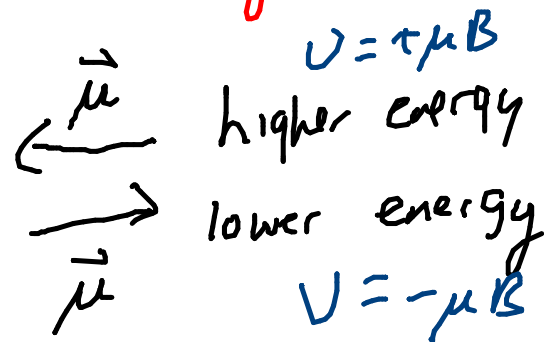 U = +μB
μ⃗
higher energy
lower energy
μ⃗
U = -μB